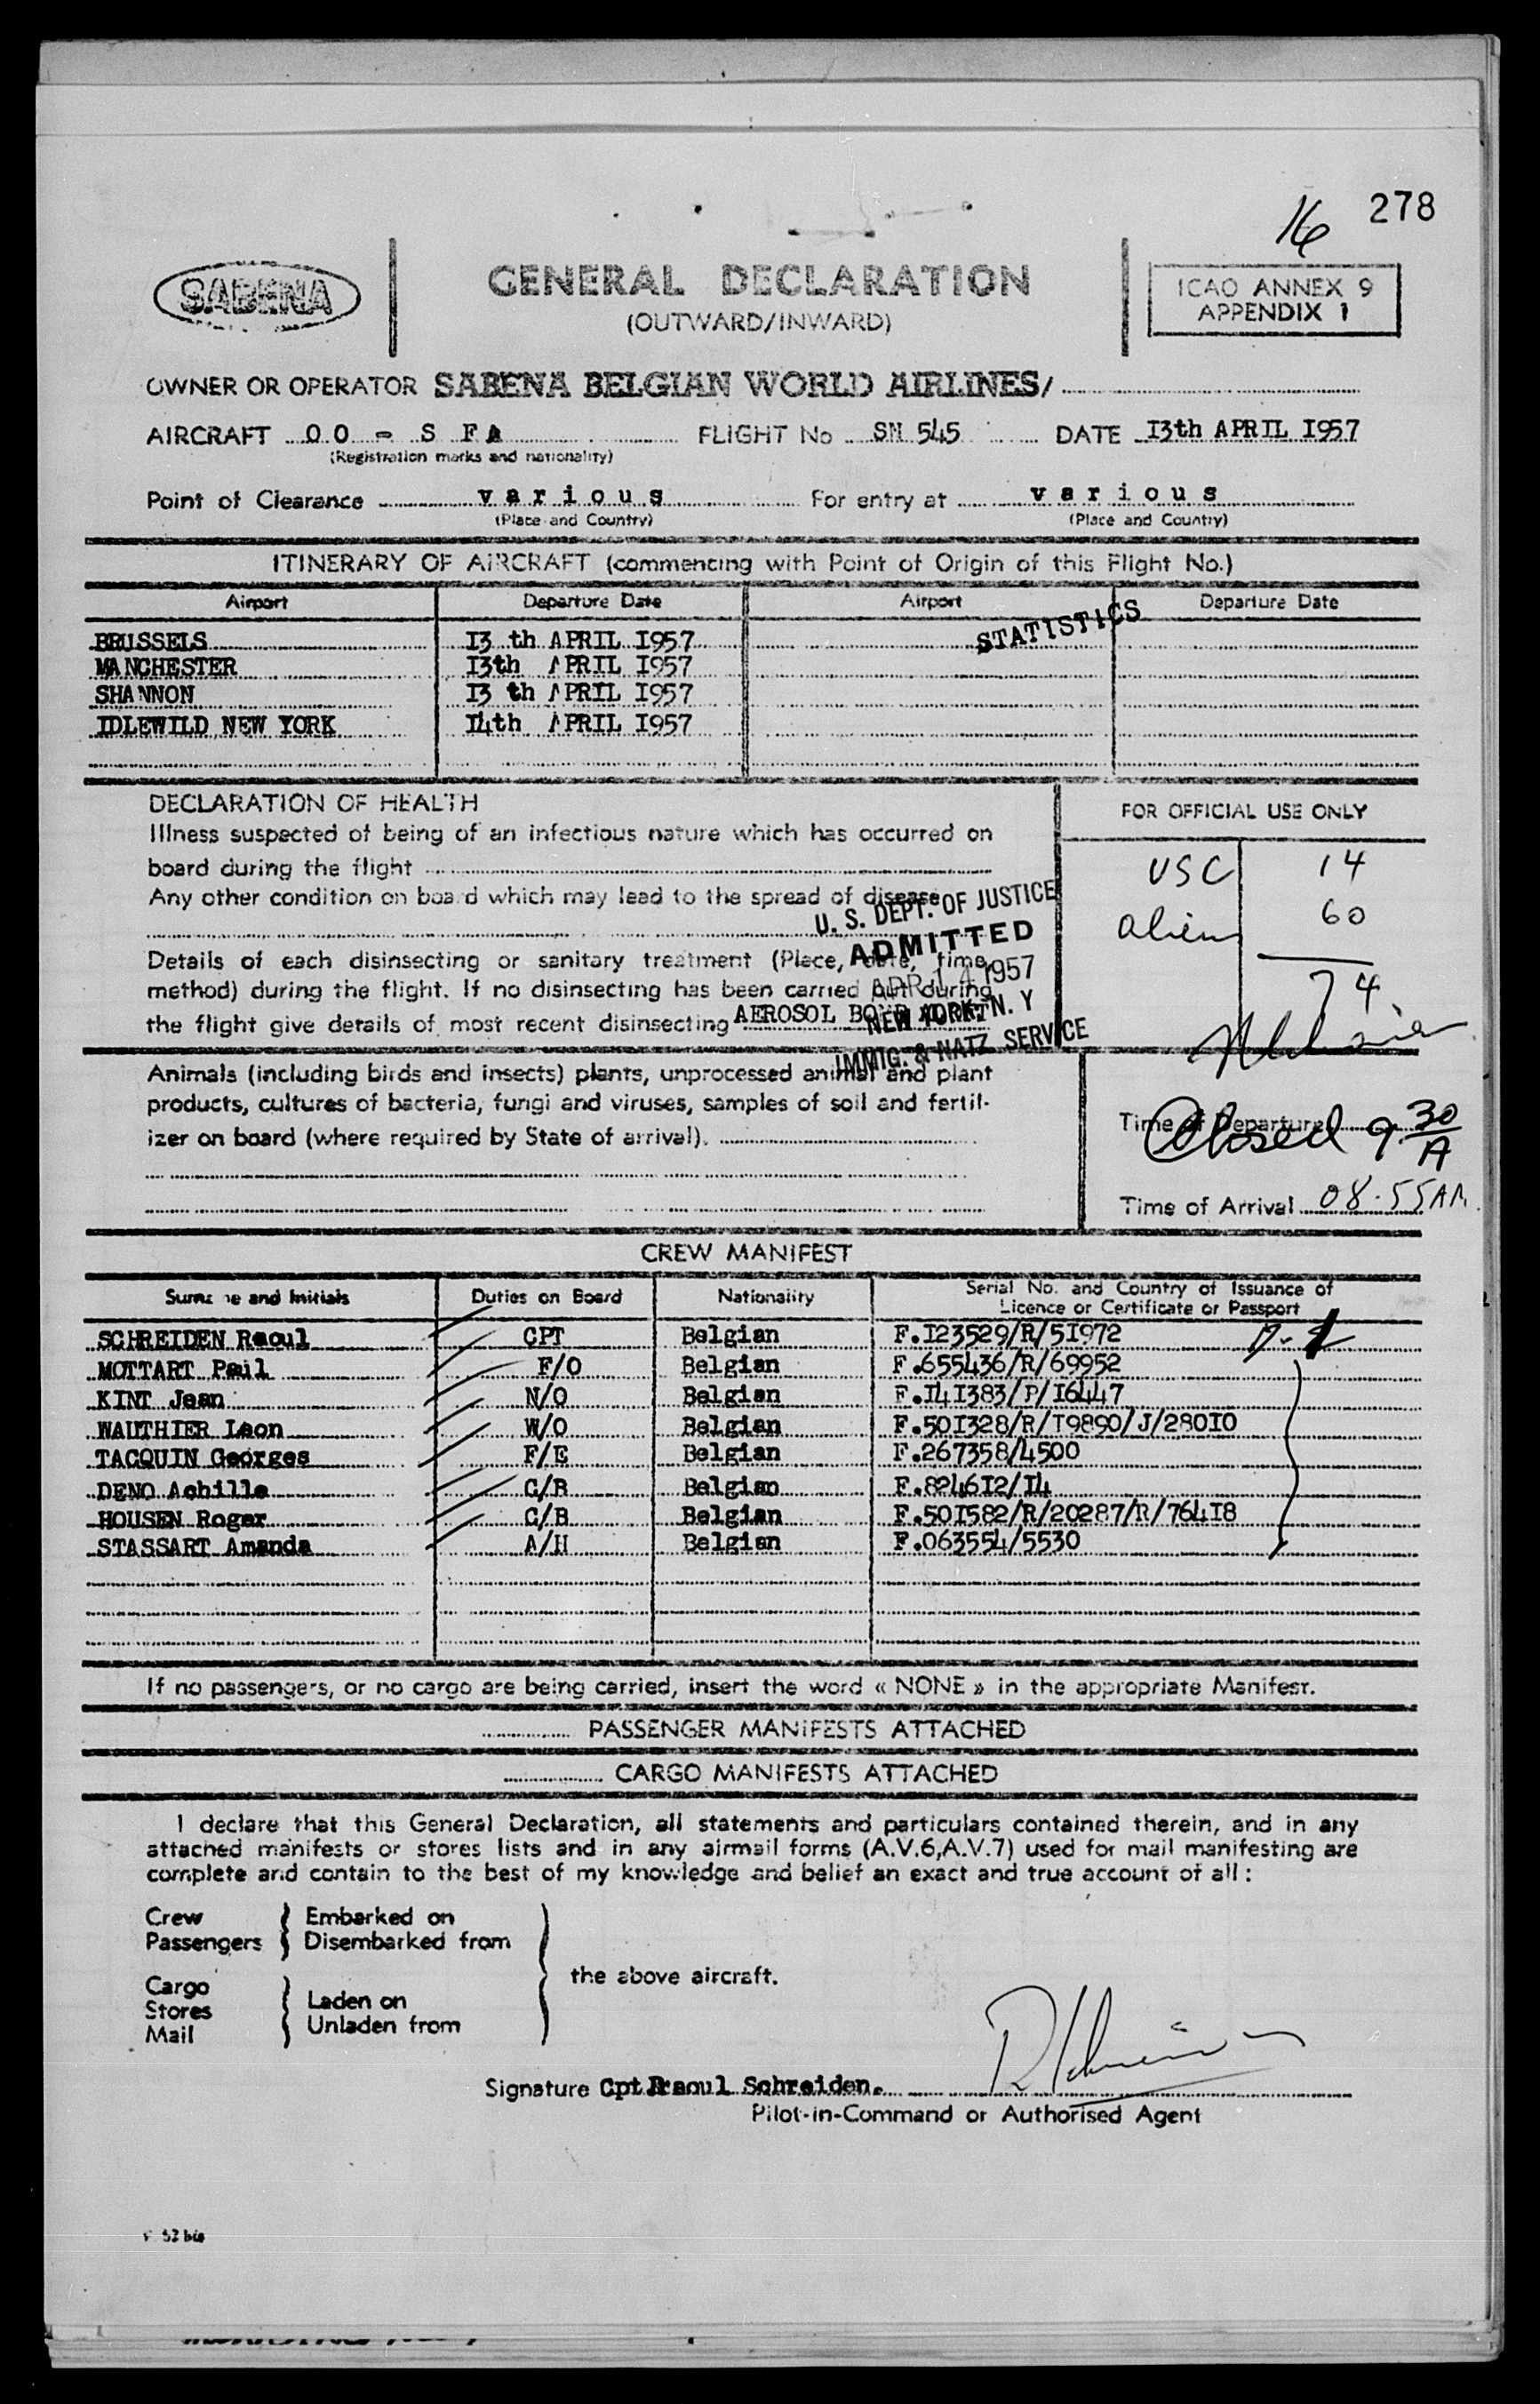 278
16
SABENA
GENERAL DECLARATION
(OUTWARD/INWARD)
ICAO ANNEX 9
APPENDIX 1
OWNER OR OPERATOR SABENA BELGIAN WORLD AIRLINES/
AIRCRAFT OO - S FA FLIGHT No SN 545 DATE I3th APRIL I957
(Registration marks and nationality)
Point of Clearance various For entry at various
(Place and Country) (Place and Country)
ITINERARY OF AIRCRAFT (commencing with Point of Origin of this Flight No.)
Airport Departure Date Airport Departure Date
STATISTICS
BRUSSELS I3 th APRIL I957
MANCHESTER I3th APRIL I957
SHANNON I3 th APRIL I957
IDLEWILD NEW YORK I4th APRIL I957
DECLARATION OF HEALTH
Illness suspected of being of an infectious nature which has occurred on
board during the flight
Any other condition on board which may lead to the spread of disease
Details of each disinsecting or sanitary treatment (Place, date, time,
method) during the flight. If no disinsecting has been carried out during
the flight give details of most recent disinsecting AEROSOL
U. S. DEPT. OF JUSTICE
ADMITTED
APR 14 1957
NEW YORK, N. Y
IMMIG. & NATZ SERVICE
FOR OFFICIAL USE ONLY
USC 14
alien 60
74
Animals (including birds and insects) plants, unprocessed animal and plant
products, cultures of bacteria, fungi and viruses, samples of soil and fertil-
izer on board (where required by State of arrival).
Time of Departure
Closed 9 30/A
Time of Arrival 08.55AM
CREW MANIFEST
Surname and Initials Duties on Board Nationality Serial No. and Country of Issuance of
Licence or Certificate or Passport
SCHREIDEN Raoul CPT Belgian F.I23529/R/5I972
MOTTART Paul F/O Belgian F.655436/R/69952
KINT Jean N/O Belgian F.I4I383/P/I6447
WAUTHIER Leon W/O Belgian F.50I328/R/T9890/J/280I0
TACQUIN Georges F/E Belgian F.267358/4500
DENO Achille C/B Belgian F.8246I2/I4
HOUSEN Roger C/B Belgian F.50I582/R/20287/R/764I8
STASSART Amanda A/H Belgian F.063554/5530
If no passengers, or no cargo are being carried, insert the word « NONE » in the appropriate Manifest.
PASSENGER MANIFESTS ATTACHED
CARGO MANIFESTS ATTACHED
I declare that this General Declaration, all statements and particulars contained therein, and in any
attached manifests or stores lists and in any airmail forms (A.V.6,A.V.7) used for mail manifesting are
complete and contain to the best of my knowledge and belief an exact and true account of all :
Crew Embarked on
Passengers Disembarked from
the above aircraft.
Cargo
Stores Laden on
Mail Unladen from
Signature Cpt.Raoul Schreiden.
Pilot-in-Command or Authorised Agent
52 bis